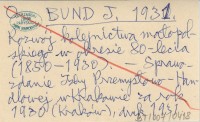 BUND J. 1931.
Rozwój kolejnictwa małopol-
skiego w okresie 80-lecia
(1850-1930). - Spraw-
zdanie Izby Przemysłowo-Han-
dlowej w Krakowie za rok
1930 (Kraków), druk 1931